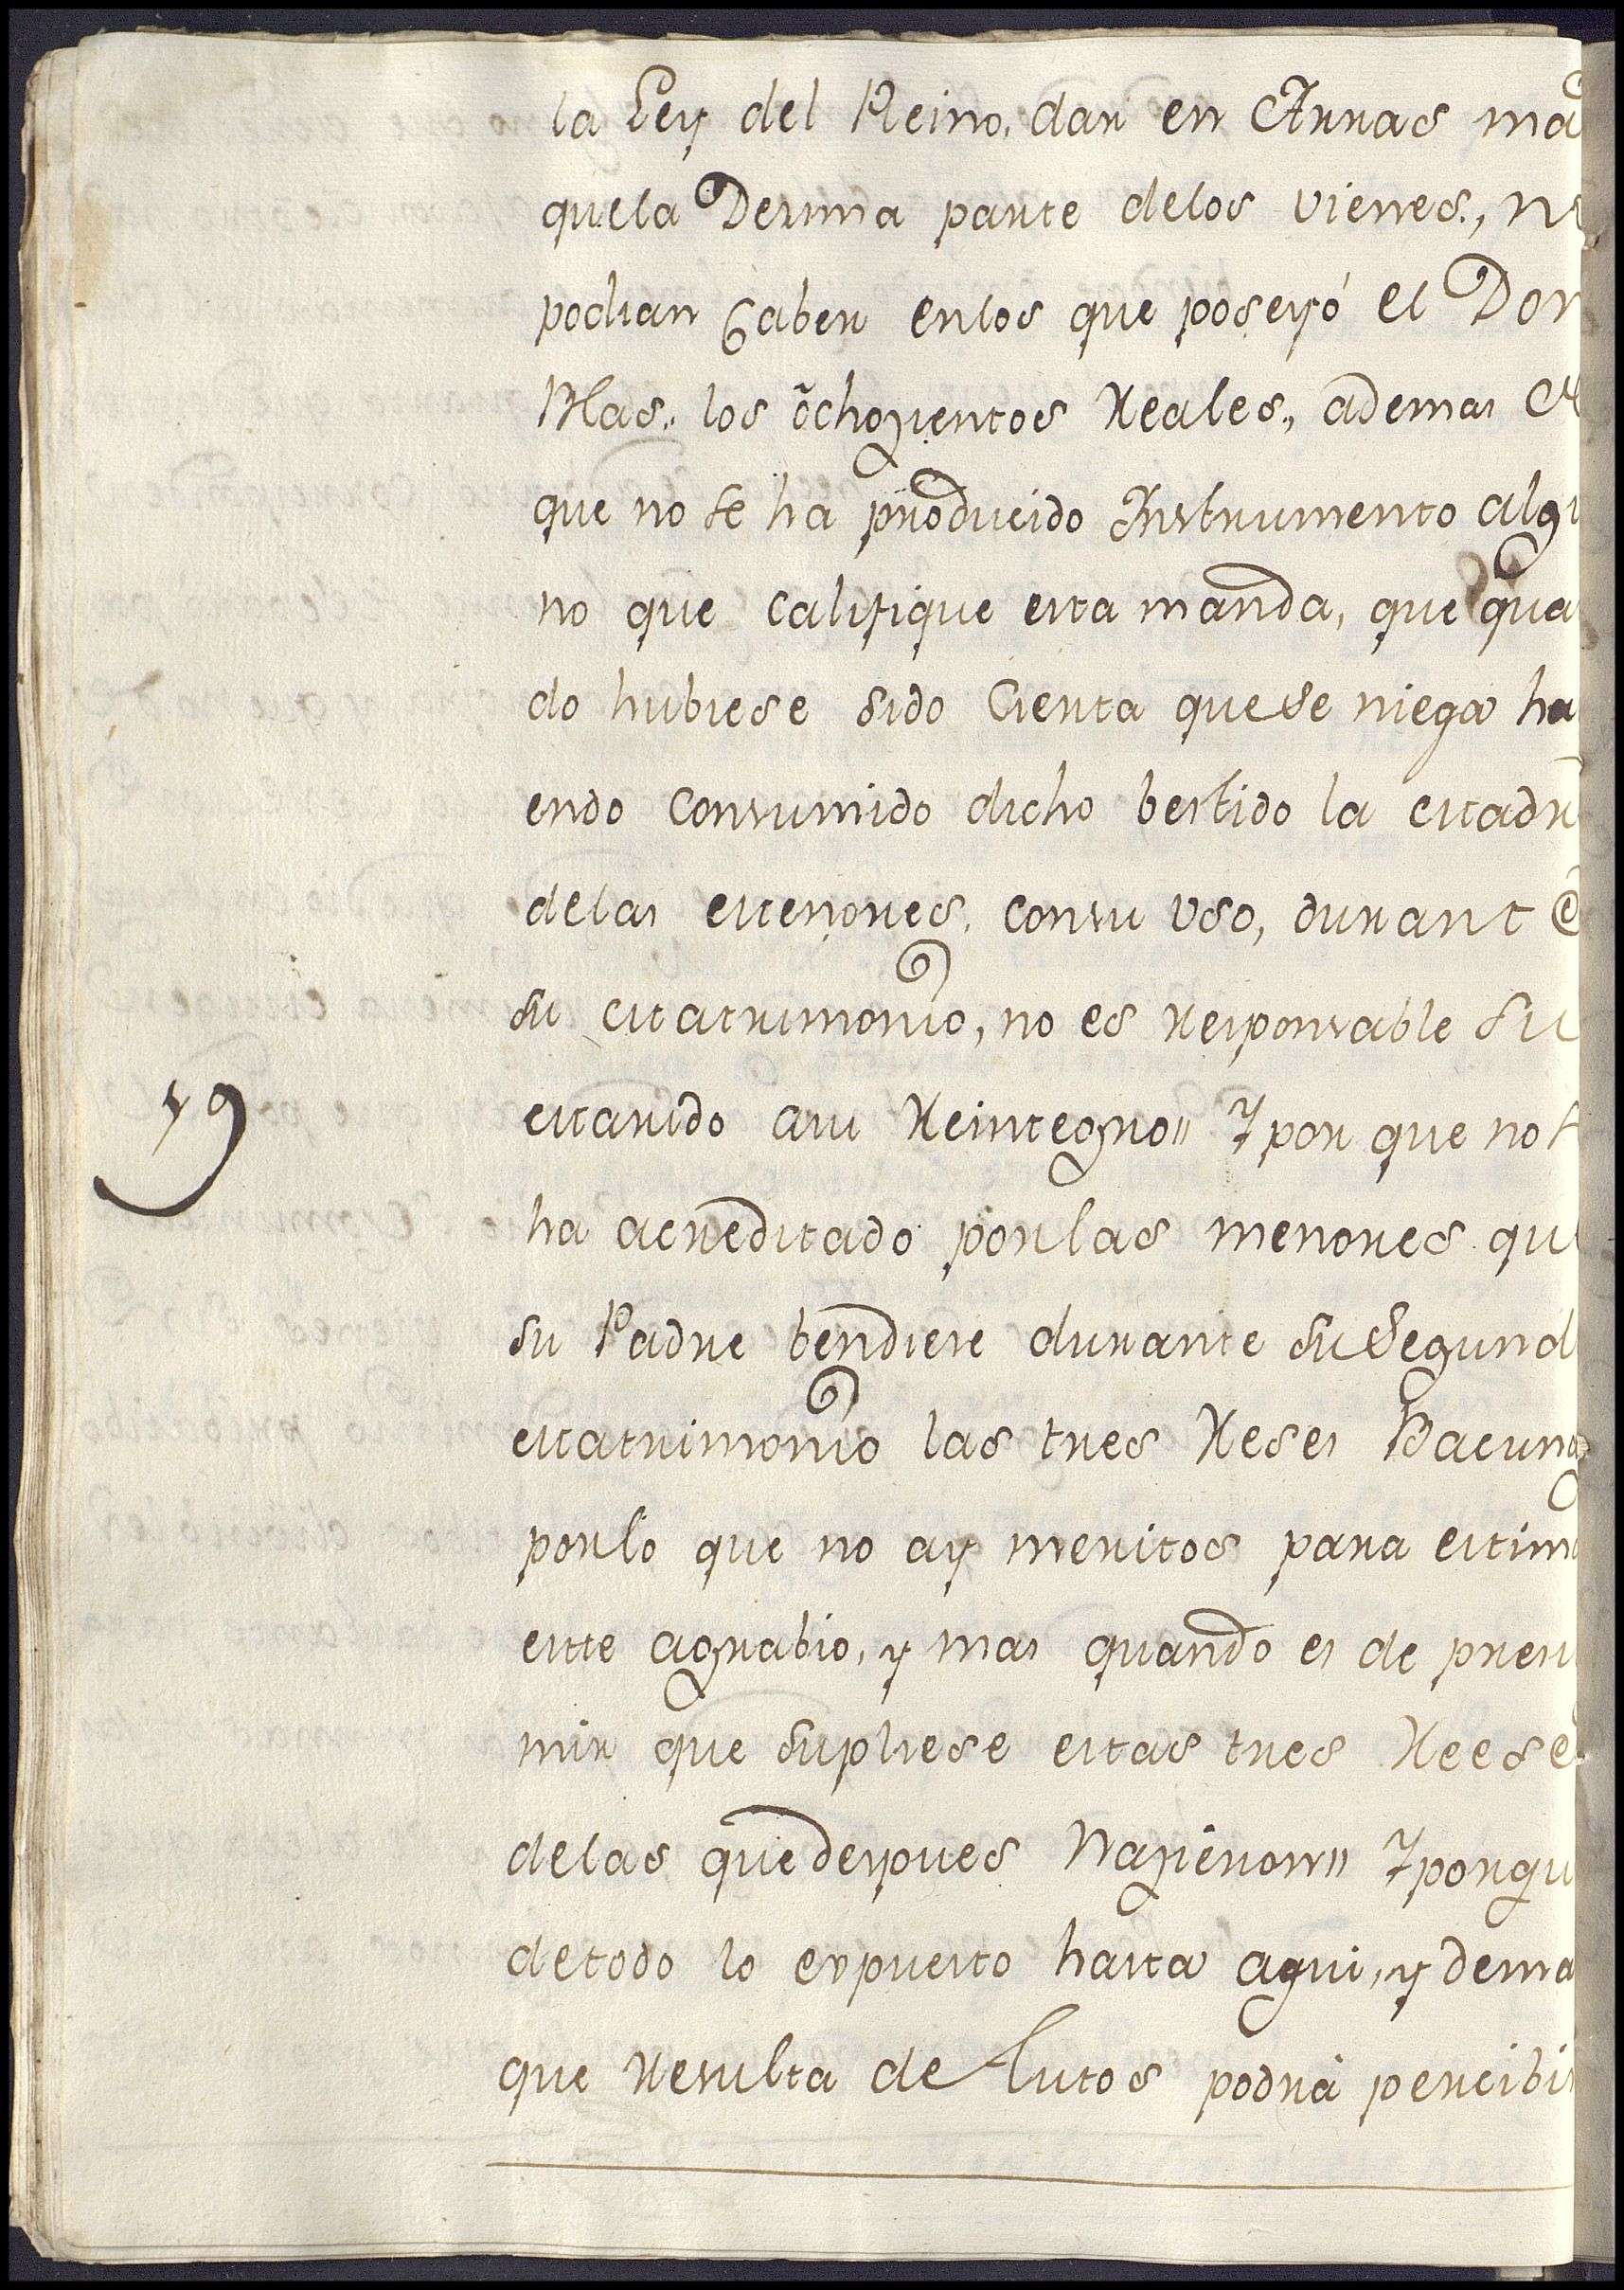 la Ley del Reino, dar en Arras ma
quela Dezima parte delos vienes, n
podian Caber enlos que poseyó el Don
Blas, los ochozientos Reales, ademas
que no se ha producido Instrumento algu
no que califique esta manda, que qua
do hubiese sido Cierta que se niega ha
endo Consumido dicho bestido la Madr
delas Menores, consu uso, durante
su Matrimonio, no es Responsable su
Marido asu Reintegro〃 Y por que no
ha acreditado porlas menores qu
su Padre bendiese durante su Segund
Matrimonio las tres Reses Bacun
porlo que no ay meritos para estim
este agrabio, y mas quando es de presu
mir que supliese estas tres Reese
delas que despues Nazieron〃 Y porqu
detodo lo expuesto hasta aqui, y dema
que Resulta de Autos podrá percibir